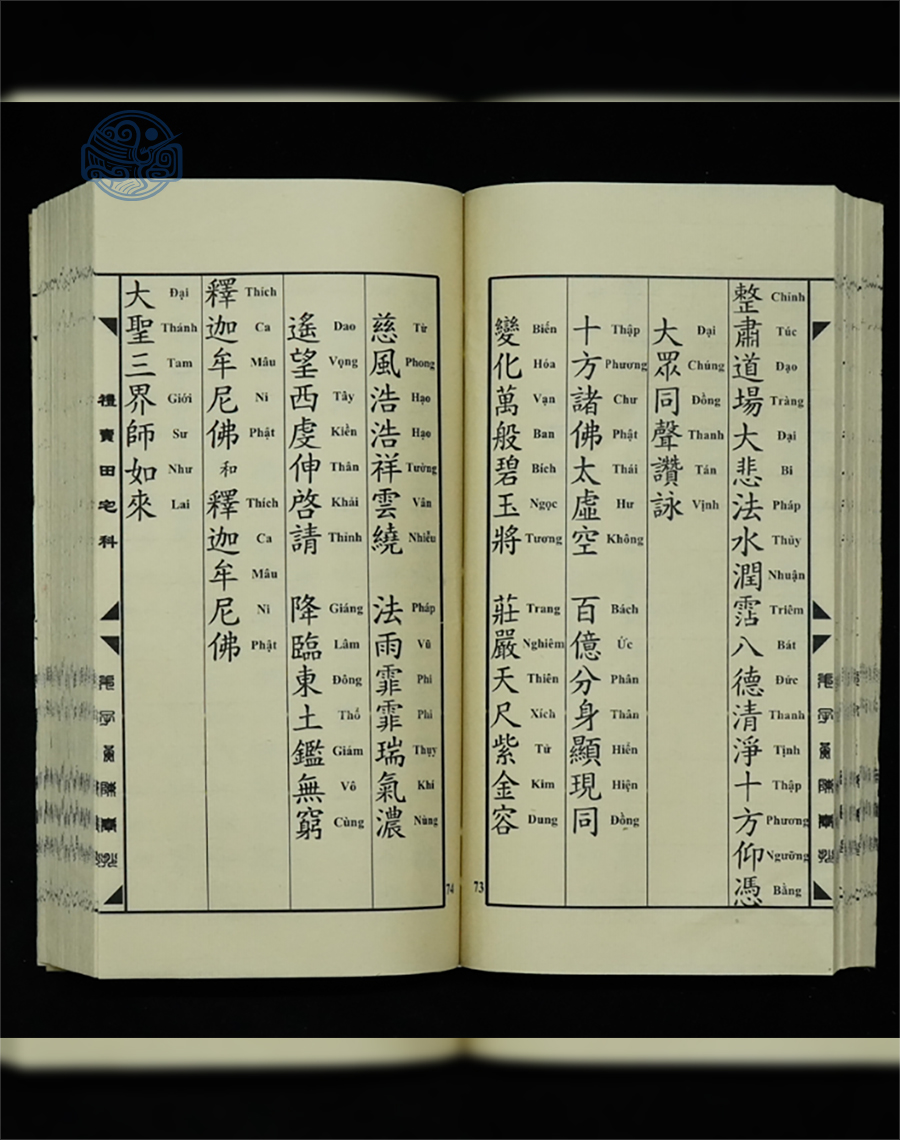 整肅道場大悲法水潤霑八德清淨十方仰憑
Chỉnh Túc Đạo Tràng Đại Bi Pháp Thủy Nhuận Triêm Bát Đức Thanh Tịnh Thập Phương Ngưỡng Bằng
大眾同聲讚詠
Đại Chúng Đồng Thanh Tán Vịnh
十方諸佛太虛空 百億分身顯現同
Thập Phương Chư Phật Thái Hư Không Bách Ức Phân Thân Hiển Hiện Đồng
變化萬般碧玉將 莊嚴天尺紫金容
Biến Hóa Vạn Ban Bích Ngọc Tương Trang Nghiêm Thiên Xích Tử Kim Dung
73
慈風浩浩祥雲繞 法雨霏霏瑞氣濃
Từ Phong Hạo Hạo Tường Vân Nhiễu Pháp Vũ Phi Phi Thụy Khí Nùng
遙望西虔伸啓請 降臨東土鑑無窮
Dao Vọng Tây Kiền Thân Khải Thỉnh Giáng Lâm Đông Thổ Giám Vô Cùng
釋迦牟尼佛 和 釋迦牟尼佛
Thích Ca Mâu Ni Phật Thích Ca Mâu Ni Phật
大聖三界師如來
Đại Thánh Tam Giới Sư Như Lai
74
田宅科